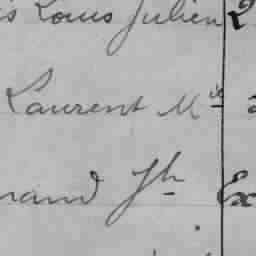 is Louis Julien 2
Laurent Mie
nand Jh Ex